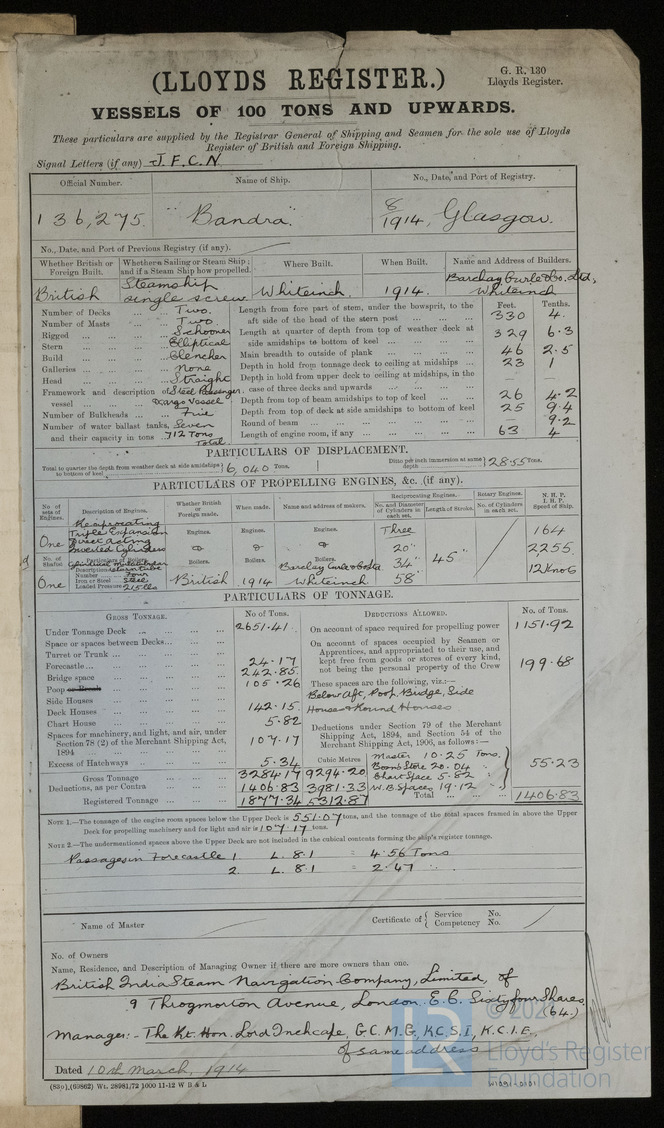 (LLOYDS REGISTER.)
G. R. 130
Lloyds Register.
VESSELS OF 100 TONS AND UPWARDS.
These particulars are supplied by the Registrar General of Shipping and Seamen for the sole use of Lloyds
Register of British and Foreign Shipping.
Signal Letters (if any) J. F. C. N
Official Number. Name of Ship. No., Date, and Port of Registry.
136,275. "Bandra" 8/1914, Glasgow.
No., Date, and Port of Previous Registry (if any).
Whether British or Foreign Built. Whether a Sailing or Steam Ship; and if a Steam Ship how propelled. Where Built. When Built. Name and Address of Builders.
British Steamship single screw Whiteinch 1914. Barclay Curle & Co. Ltd, Whiteinch
Number of Decks Two.
Number of Masts Two.
Rigged Schooner
Stern Elliptical
Build Clencher
Galleries None
Head Straight
Framework and description of vessel Steel Passenger & Cargo Vessel
Number of Bulkheads Five
Number of water ballast tanks, and their capacity in tons Seven 712 Tons Total.
Feet. Tenths.
Length from fore part of stem, under the bowsprit, to the aft side of the head of the stern post 330 4.
Length at quarter of depth from top of weather deck at side amidships to bottom of keel 329 6.3
Main breadth to outside of plank 46 2.5
Depth in hold from tonnage deck to ceiling at midships 23 1
Depth in hold from upper deck to ceiling at midships, in the case of three decks and upwards — —
Depth from top of beam amidships to top of keel 26 4.2
Depth from top of deck at side amidships to bottom of keel 25 9.4
Round of beam 9.2
Length of engine room, if any 63 4
PARTICULARS OF DISPLACEMENT.
Total to quarter the depth from weather deck at side amidships to bottom of keel 6,040 Tons. Ditto per inch immersion at same depth 28.55 Tons.
PARTICULARS OF PROPELLING ENGINES, &c. (if any).
No. of sets of Engines. Description of Engines. Whether British or Foreign made. When made. Name and address of makers. Reciprocating Engines. Rotary Engines. N. H. P. I. H. P. Speed of Ship.
No. and Diameter of Cylinders in each set. Length of Stroke. No. of Cylinders in each set.
One Reciprocating Triple Expansion Direct Acting Inverted Cylinders
Engines. Engines. Engines. Three 164
No. of Shafts. Particulars of Boilers. Boilers. Boilers. Boilers. 20" 45" 2255
Description
Number Four
Iron or Steel Steel
Loaded Pressure 215 lbs
One British 1914 Barclay Curle & Co Ltd Whiteinch 34" 58" 12 Knots
PARTICULARS OF TONNAGE.
GROSS TONNAGE. No. of Tons.
Under Tonnage Deck 2651.41
Space or spaces between Decks
Turret or Trunk
Forecastle 24.17
Bridge space 242.85
Poop or Break 105.26
Side Houses
Deck Houses 142.15
Chart House 5.82
Spaces for machinery, and light, and air, under Section 78 (2) of the Merchant Shipping Act, 1894 107.17
Excess of Hatchways 5.34
Cubic Metres
Gross Tonnage 3284.17 9294.20
Deductions, as per Contra 1406.83 3981.33
Registered Tonnage 1877.34 5312.87
DEDUCTIONS ALLOWED. No. of Tons.
On account of space required for propelling power 1151.92
On account of spaces occupied by Seamen or Apprentices, and appropriated to their use, and kept free from goods or stores of every kind, not being the personal property of the Crew 199.68
These spaces are the following, viz.:—
Below Aft, Poop, Bridge, Side
Houses & Round Houses
Deductions under Section 79 of the Merchant Shipping Act, 1894, and Section 54 of the Merchant Shipping Act, 1906, as follows:—
Master 10.25 Tons.
Bosn's Store 20.04 "
Chart Space 5.82 "
W. B. Spaces 19.12 "
55.23
Total 1406.83
NOTE 1.—The tonnage of the engine room spaces below the Upper Deck is 551.07 tons, and the tonnage of the total spaces framed in above the Upper
Deck for propelling machinery and for light and air is 107.17 tons.
NOTE 2.—The undermentioned spaces above the Upper Deck are not included in the cubical contents forming the ship's register tonnage.
Passages in Forecastle 1. L. 8.1 = 4.56 Tons
2. L. 8.1 = 2.47 "
Name of Master Certificate of { Service No. Competency No.
No. of Owners
Name, Residence, and Description of Managing Owner if there are more owners than one.
British India Steam Navigation Company, Limited, of
9 Throgmorton Avenue, London. E.C. Sixty four Shares
(64.)
Manager:- The Rt. Hon. Lord Inchcape, G.C.M.G, K.C.S.I, K.C.I.E,
of same address
Dated 10th March, 1914
(85o), (69862) Wt. 28981/72 1000 11-12 W B & L
W1091-0101
LR
Lloyd's Register
Foundation